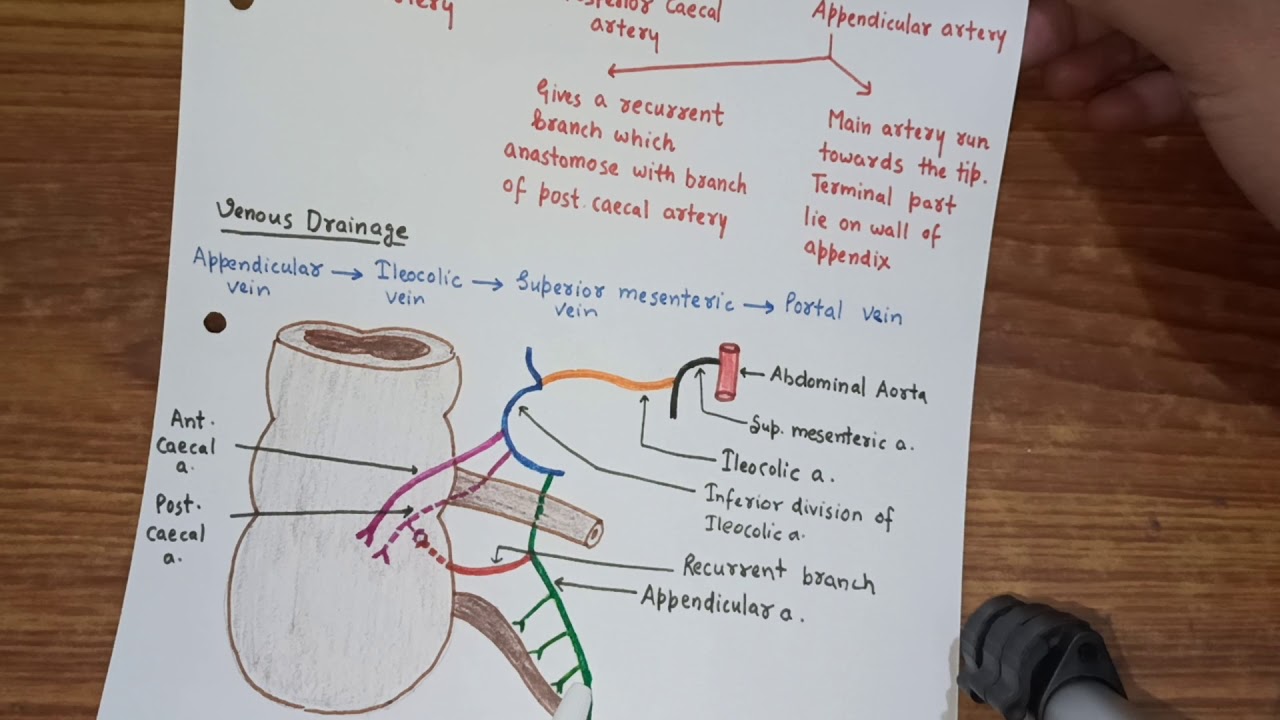 Caecal
artery
Appendicular artery
Gives a recurrent
branch which
anastomose with branch
of post. caecal artery
Main artery run
towards the tip.
Terminal part
lie on wall of
appendix
Venous Drainage
Appendicular → Ileocolic → Superior mesenteric → Portal vein
vein vein vein
Abdominal Aorta
Sup. mesenteric a.
Ileocolic a.
Inferior division of
Ileocolic a.
Recurrent branch
Appendicular a.
Ant.
Caecal
a.
Post.
Caecal
a.